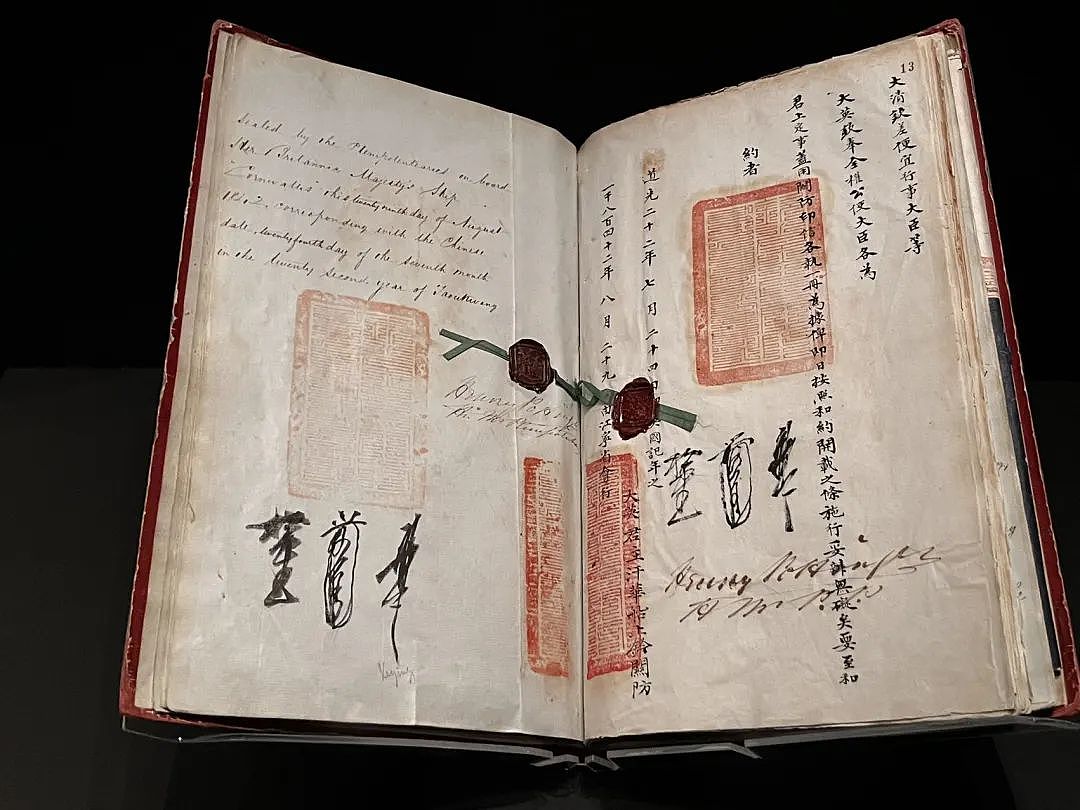 Sealed by the Plenipotentiaries on board
Her Britannic Majesty's Ship
Cornwallis this twenty ninth day of August
1842, corresponding with the Chinese
date, twenty fourth day of the seventh month
in the twenty second year of Taoukwang
Henry Pottinger
Keying
13
大清欽差便宜行事大臣等
大英欽奉全權公使大臣各為
君上定事蓋用關防印信各執一冊為據俾即日按照和約開載之條施行妥辦無礙矣要至和
約者
道光二十二年七月二十四日英國記年之
一千八百四十二年八月二十九由江寧省會行
大英君主汗華船上鈐關防
Henry Pottinger